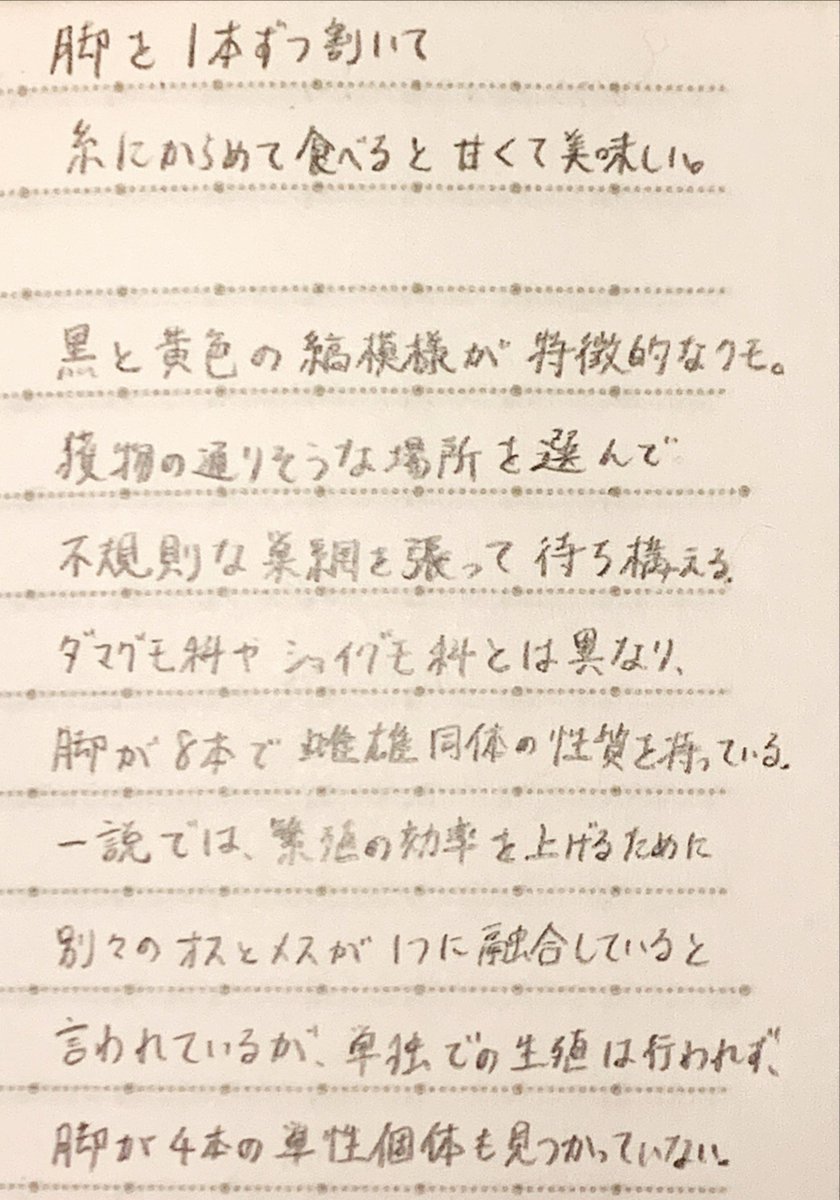 脚を1本ずつ割いて
糸にからめて食べると甘くて美味しい。
黒と黄色の縞模様が特徴的なクモ。
獲物の通りそうな場所を選んで
不規則な巣網を張って待ち構える。
ダマグモ科やショイグモ科とは異なり、
脚が8本で雌雄同体の性質を持っている。
一説では、繁殖の効率を上げるために
別々のオスとメスが1つに融合していると
言われているが、単独での生殖は行われず、
脚が4本の単性個体も見つかっていない。